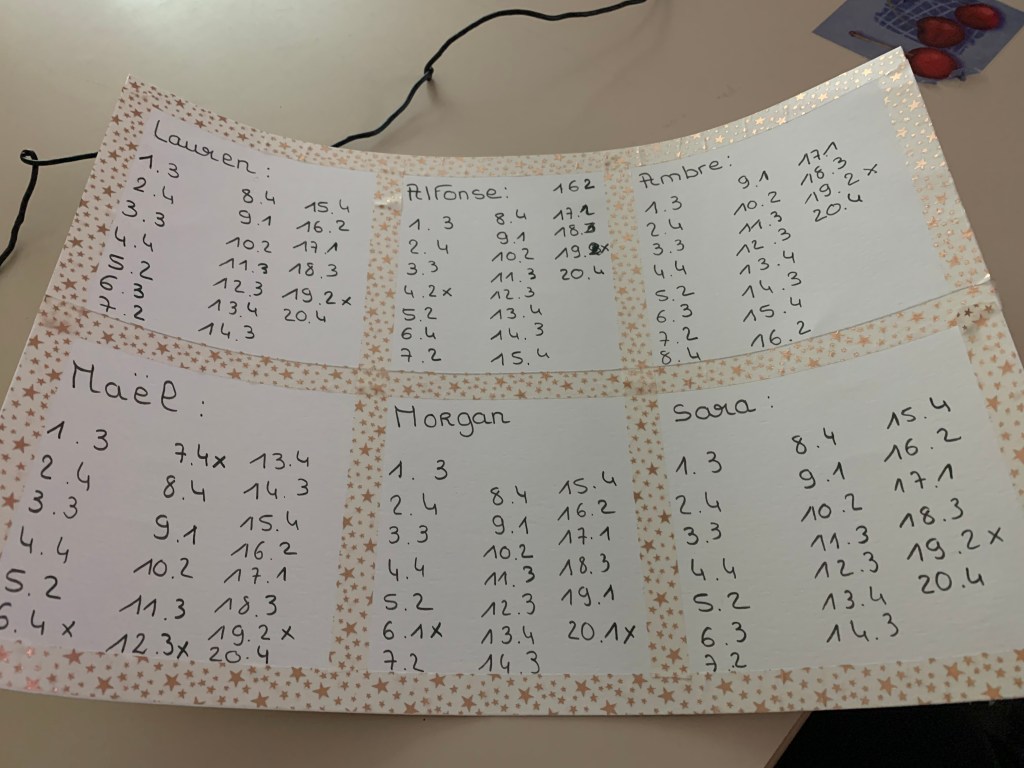 Lauren :
1.3
2.4
3.3
4.4
5.2
6.3
7.2
8.4
9.1
10.2
11.3
12.3
13.4
14.3
15.4
16.2
17.1
18.3
19.2x
20.4
Alfonse:
1.3
2.4
3.3
4.2x
5.2
6.4
7.2
8.4
9.1
10.2
11.3
12.3
13.4
14.3
15.4
162
17.1
18.3
20.4
Ambre:
1.3
2.4
3.3
4.4
5.2
6.3
7.2
8.4
9.1
10.2
11.3
12.3
13.4
14.3
15.4
16.2
17.1
18.3
19.2x
20.4
Maël :
1.3
2.4
3.3
4.4
5.2
6.4x
7.4x
8.4
9.1
10.2
11.3
12.3x
13.4
14.3
15.4
16.2
17.1
18.3
19.2x
20.4
Morgan
1.3
2.4
3.3
4.4
5.2
6.1x
7.2
8.4
9.1
10.2
11.3
12.3
13.4
14.3
15.4
16.2
17.1
18.3
19.1
20.1x
Sara :
1.3
2.4
3.3
4.4
5.2
6.3
7.2
8.4
9.1
10.2
11.3
12.3
13.4
14.3
15.4
16.2
17.1
18.3
19.2x
20.4